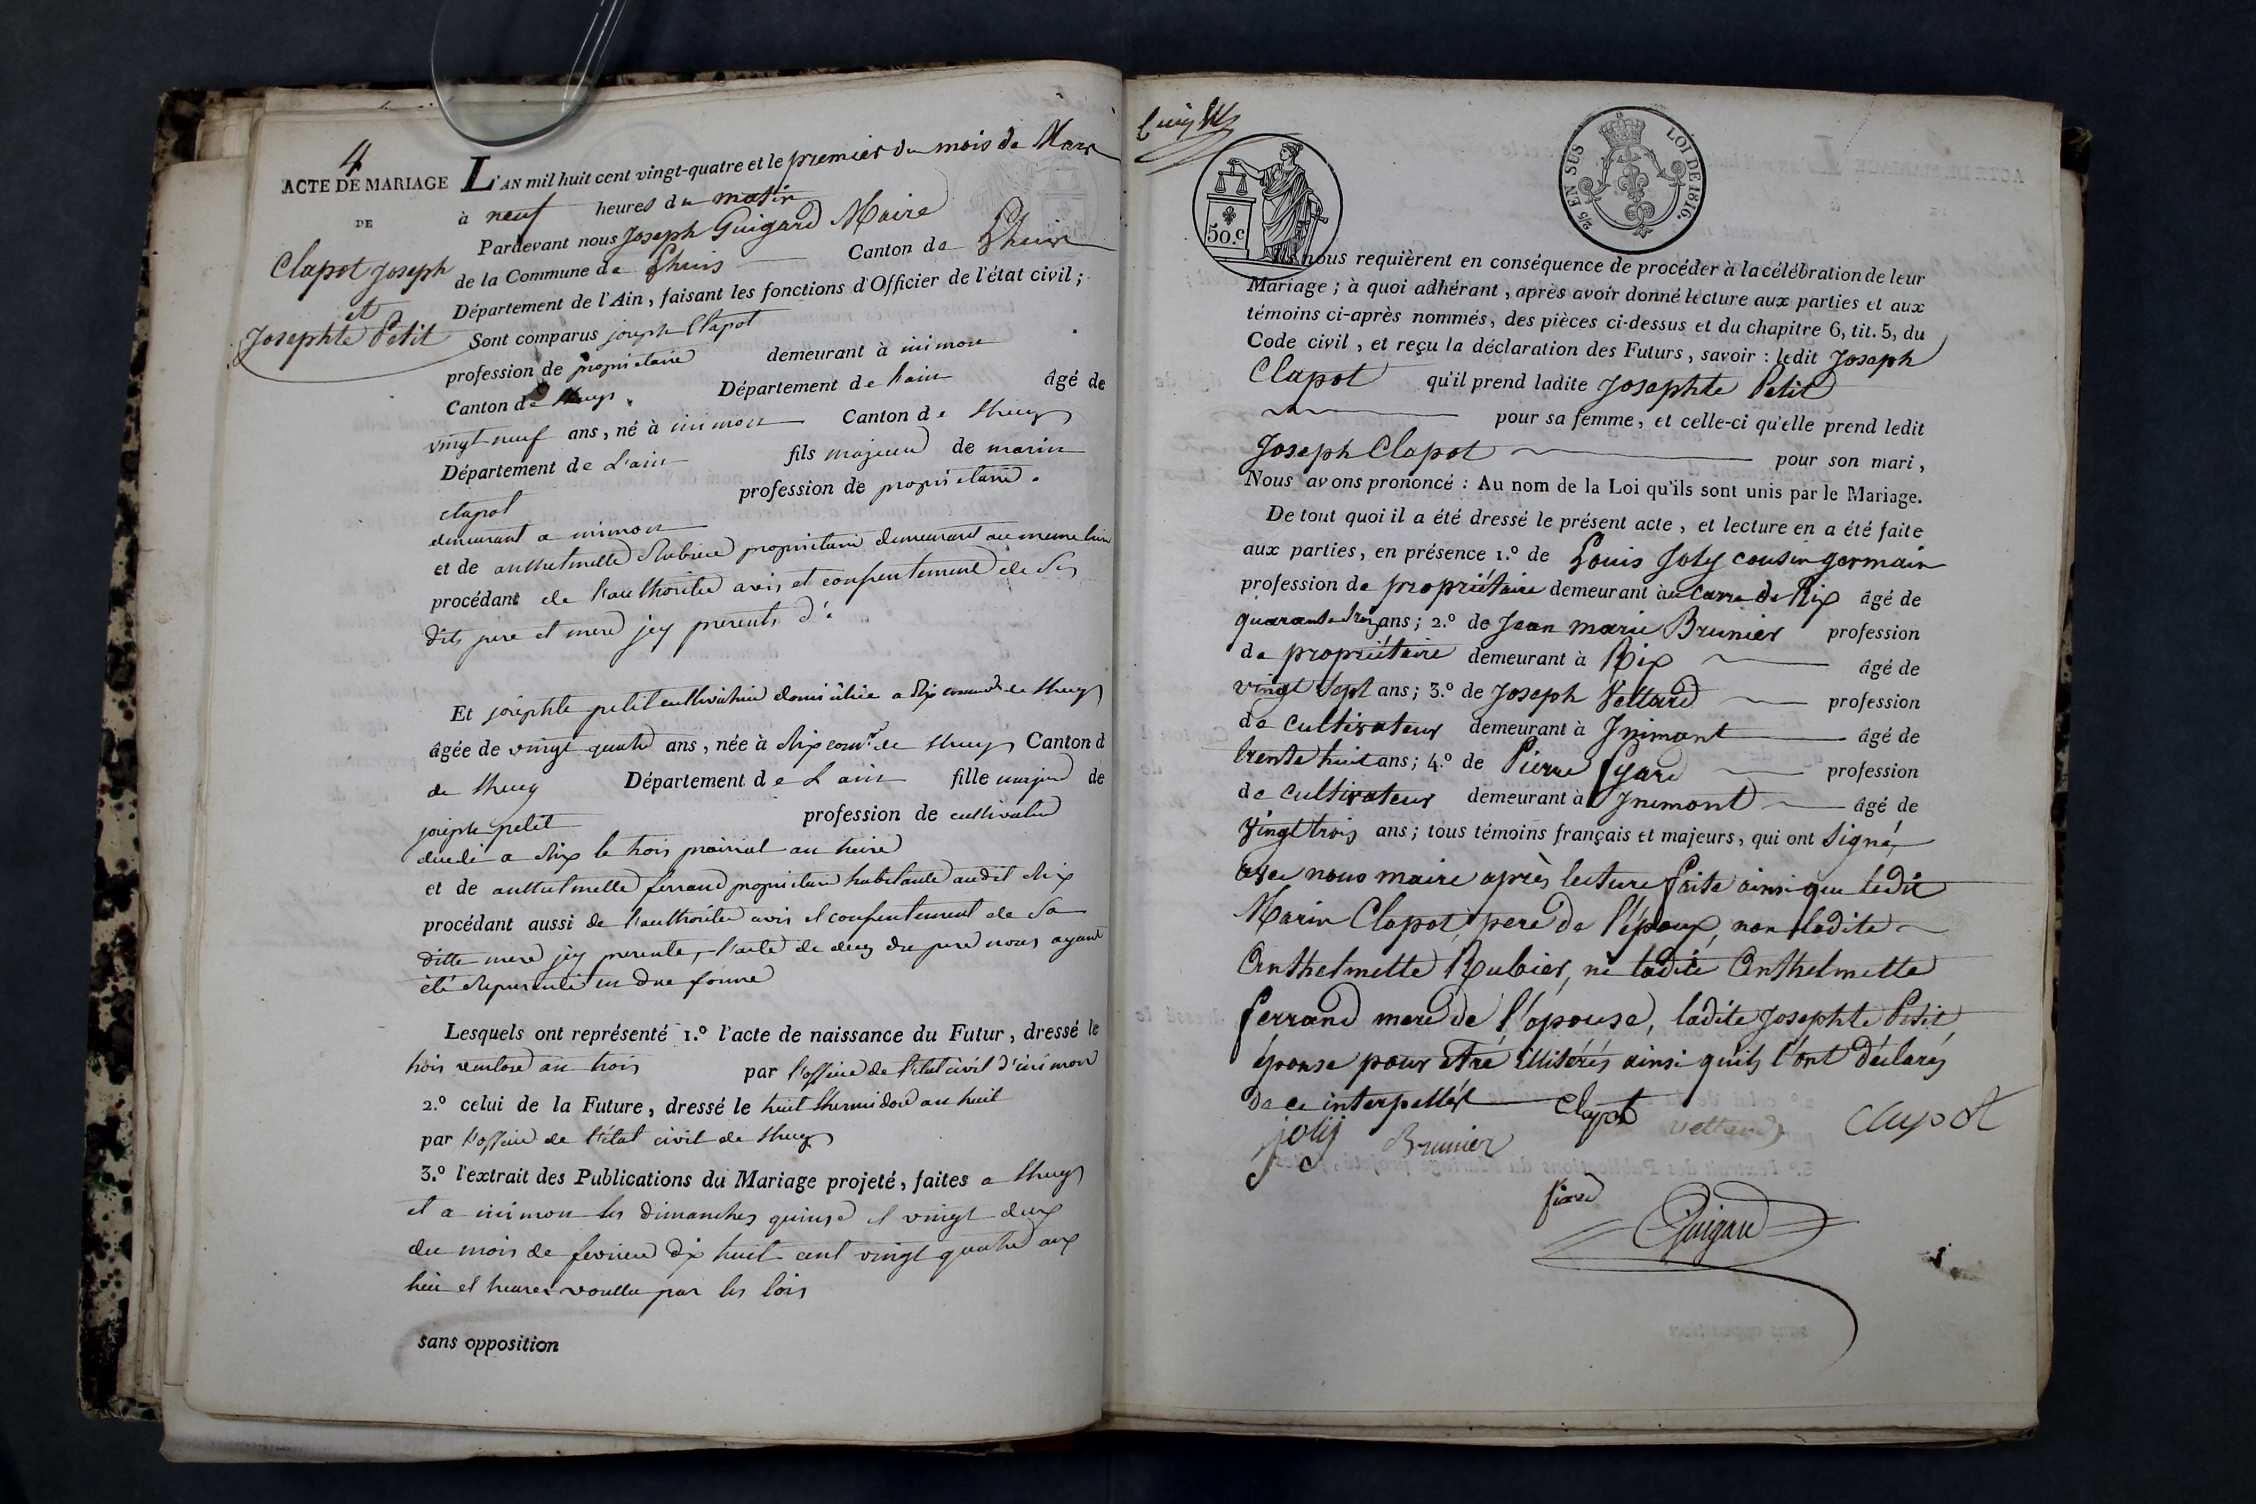 4
ACTE DE MARIAGE
DE
Clapot Joseph
et
Josephte Petit
L'AN mil huit cent vingt-quatre et le premier du mois de Mars
à neuf heures du matin
Pardevant nous Joseph Guigard Maire
de la Commune de Lhuis Canton de Lhuis
Département de l'Ain, faisant les fonctions d'Officier de l'état civil ;
Sont comparus joseph Clapot
profession de propriétaire demeurant à inimon
Canton de Lhuys Département de lain âgé de
vingt neuf ans, né à inimon Canton de Lhuys
Département de L'ain fils majeur de marin
clapot profession de proprietaire.
demeurant a inimon
et de anthelmette Rubier proprietaire demeurant au meme lieu
procédant de l'authorité avis et consentement de Ses
dits pere et mere jcy presents
Et josephte petit cultivatrice domiciliée a Rix commune de Lhuys
âgée de vingt quatre ans, née à Rix comne de Lhuys Canton d
de Lhuys Département de L'ain fille majeure de
joseph petit profession de cultivateur
decedé a Rix le trois prairial an treize
et de anthelmette ferrand proprietaire habitante audit Rix
procédant aussi de l'authorité avis et consentement de Sa
ditte mere jcy presente, l'acte de deces du pere nous ayant
été representé en due forme
Lesquels ont représenté 1.º l'acte de naissance du Futur, dressé le
trois ventose an trois par l'officier de l'etat civil d'inimon
2.º celui de la Future, dressé le huit thermidor an huit
par l'officier de l'état civil de Lhuys
3.º l'extrait des Publications du Mariage projeté, faites a Lhuys
et a inimon les dimanches quinze et vingt deux
du mois de fevrier dix huit cent vingt quatre aux
lieu et heures voullu par les lois
sans opposition
50.c
2/5 EN SUS
LOI DE 1816.
nous requièrent en conséquence de procéder à la célébration de leur
Mariage ; à quoi adhérant, après avoir donné lecture aux parties et aux
témoins ci-après nommés, des pièces ci-dessus et du chapitre 6, tit. 5, du
Code civil, et reçu la déclaration des Futurs, savoir : ledit Joseph
Clapot qu'il prend ladite Josephte Petit
pour sa femme, et celle-ci qu'elle prend ledit
Joseph Clapot pour son mari,
Nous avons prononcé : Au nom de la Loi qu'ils sont unis par le Mariage.
De tout quoi il a été dressé le présent acte, et lecture en a été faite
aux parties, en présence 1.º de Louis Joly cousin germain
profession de propriétaire demeurant au de Rix âgé de
quarante trois ans ; 2.º de Jean marie Brunier profession
de propriétaire demeurant à Rix âgé de
vingt sept ans ; 3.º de Joseph Vettard profession
de cultivateur demeurant à Jnimont âgé de
trente huit ans ; 4.º de Pierre fyard profession
de cultivateur demeurant à Jnimont âgé de
vingt trois ans ; tous témoins français et majeurs, qui ont Signé,
avec nous maire après lecture faite ainsi que ledit
Marin Clapot, pere de l'époux, non ladite
Anthelmette Rubier, ni ladite Anthelmette
ferrand mere de l'épouse, ladite Josephte Petit
épouse pour être illitérés ainsi qu'ils l'ont déclarés
de ce interpellés
Clapot
vettard
Clapot
joly
Brunier
fiard
Guigard